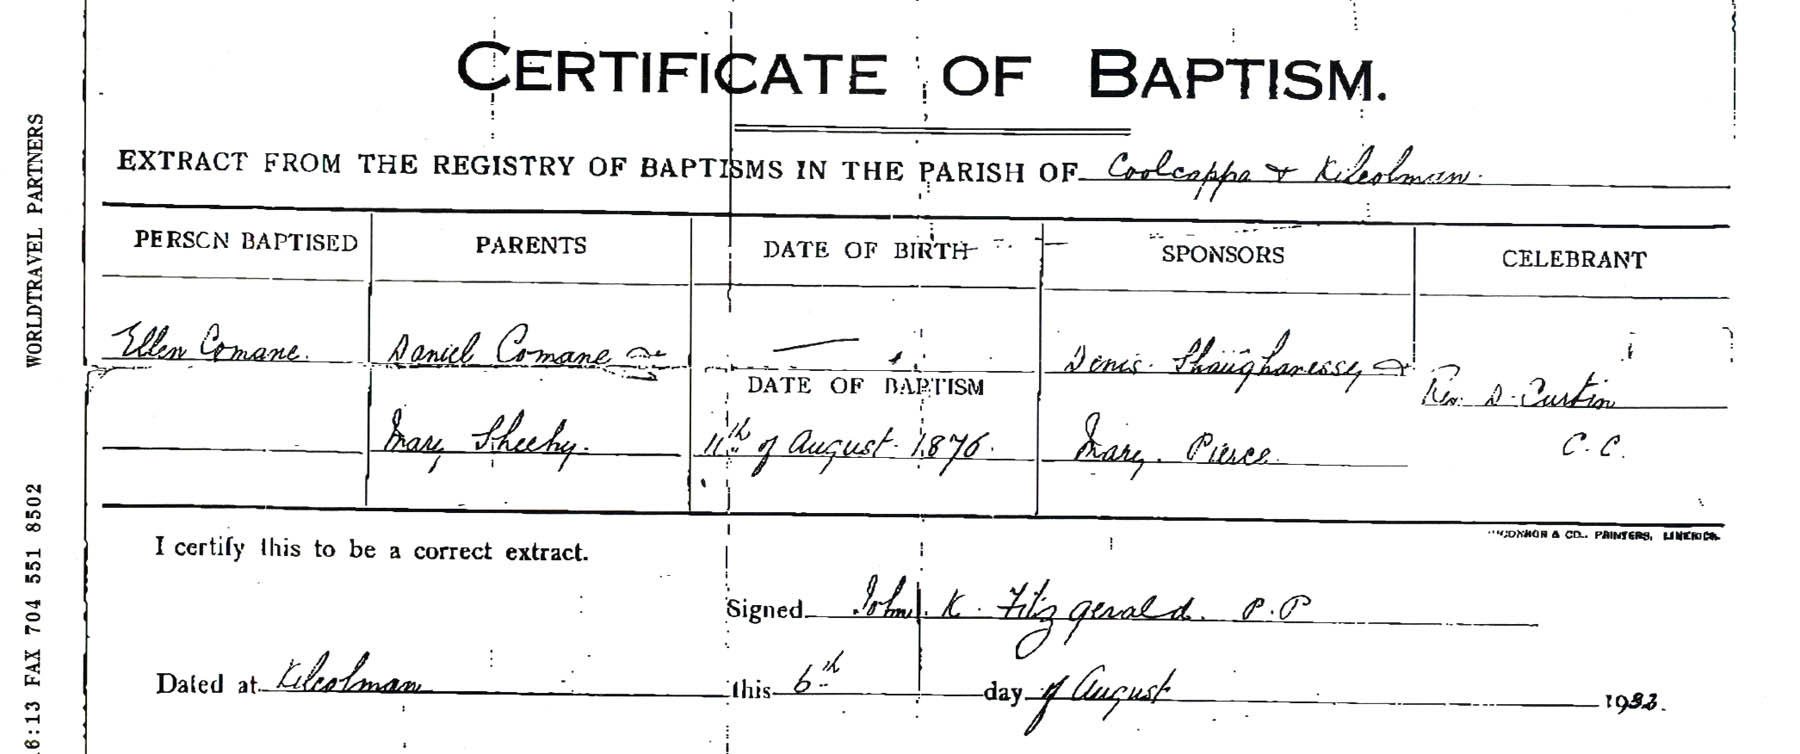 CERTIFICATE OF BAPTISM.
EXTRACT FROM THE REGISTRY OF BAPTISMS IN THE PARISH OF Coolcappa & Kilcolman.
PERSON BAPTISED PARENTS DATE OF BIRTH SPONSORS CELEBRANT
Ellen Comane. Daniel Comane & — Denis Shaughanessy &
DATE OF BAPTISM Rev. D. Curtin
Mary Sheehy. 11th of August 1876. Mary Pierce C.C.
& CO., PRINTERS, LIMERICK.
I certify this to be a correct extract.
Signed John K. Fitzgerald. P.P
Dated at Kilcolman this 6th day of August 1933.
6:13 FAX 704 551 8502 WORLDTRAVEL PARTNERS